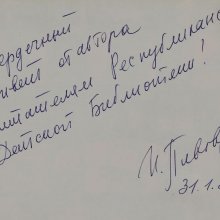 сердечный
привет от автора
читателям Республиканс
Детской Библиотеки!
И. Пивов
31.1.